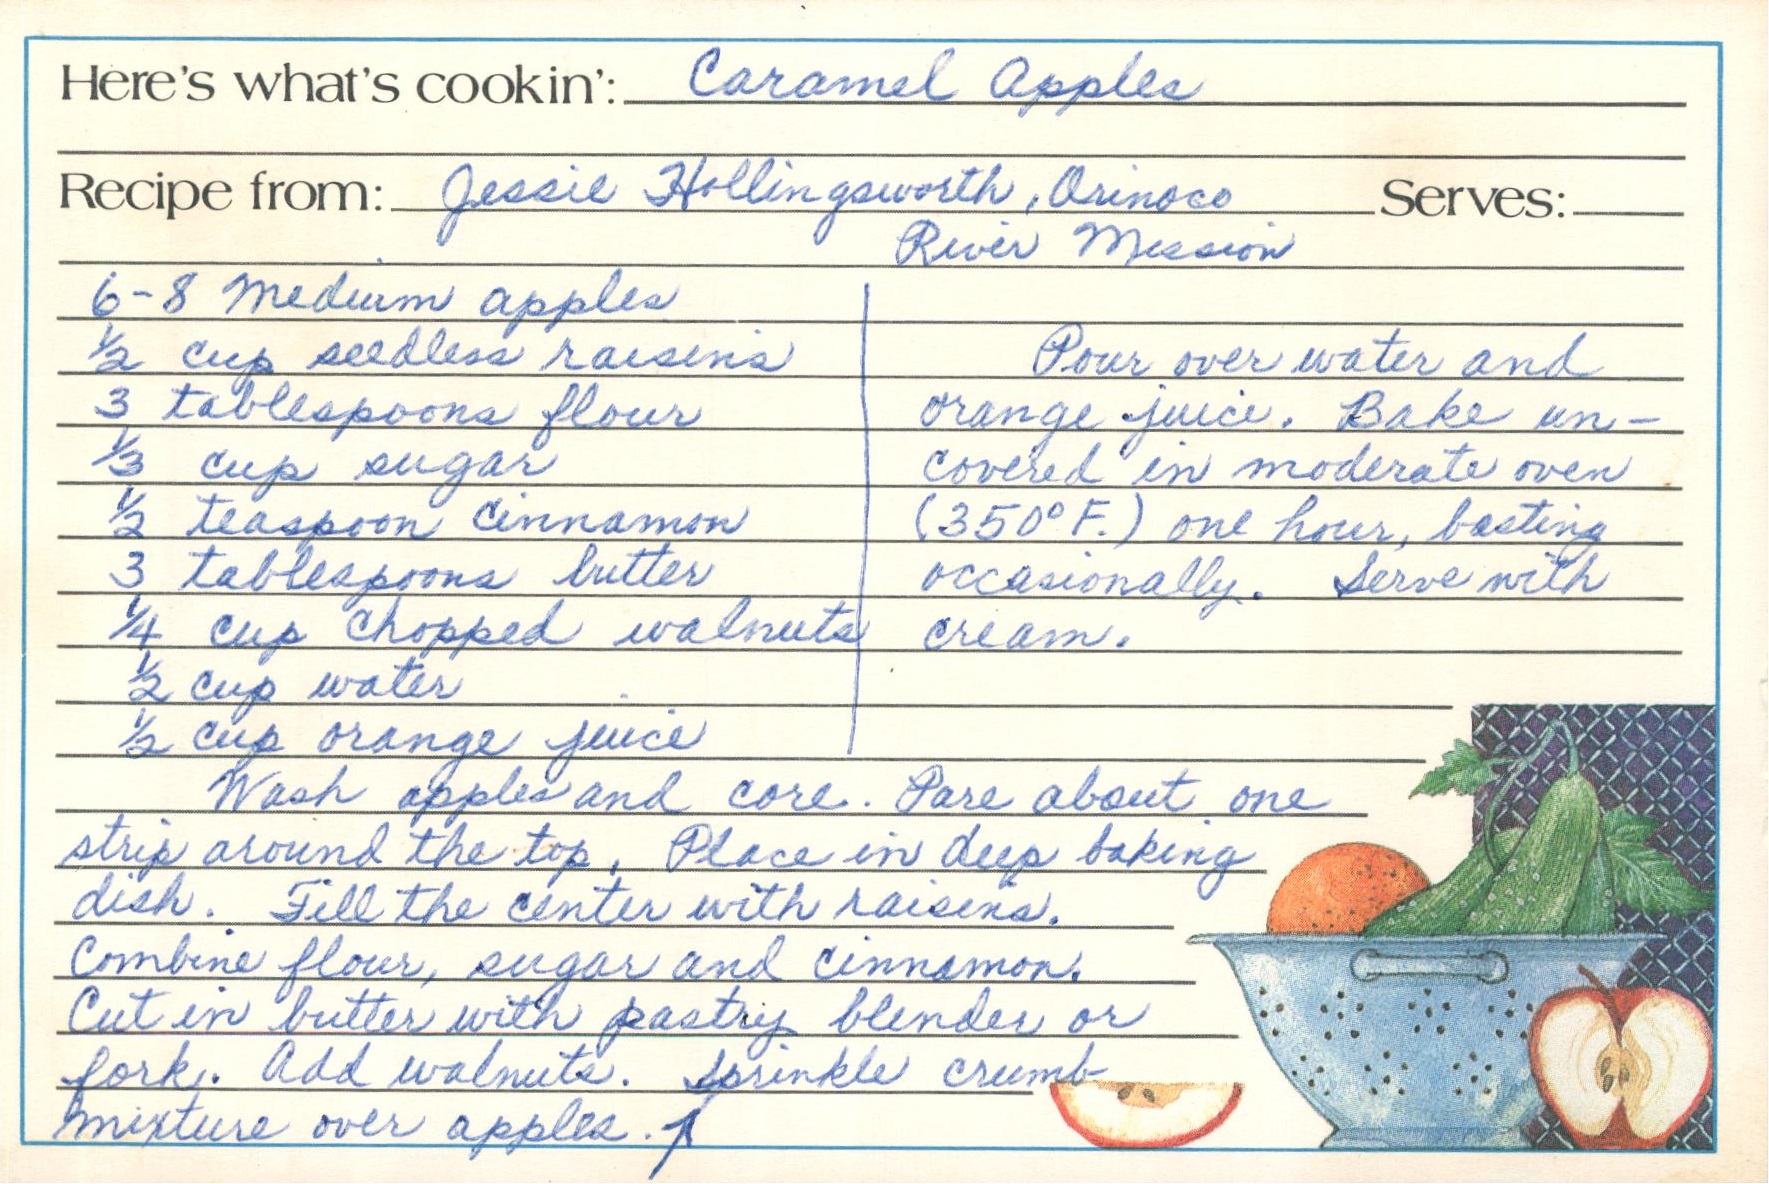 Here's what's cookin': Caramel Apples
Recipe from: Jessie Hollingsworth, Orinoco Serves:
River Mission
6-8 Medium apples
1/2 cup seedless raisins
3 tablespoons flour
1/3 cup sugar
1/2 teaspoon cinnamon
3 tablespoons butter
1/4 cup chopped walnuts
1/2 cup water
1/2 cup orange juice
Wash apples and core. Pare about one
strip around the top. Place in deep baking
dish. Fill the center with raisins.
Combine flour, sugar and cinnamon.
Cut in butter with pastry blender or
fork. Add walnuts. Sprinkle crumb
mixture over apples. ↑
Pour over water and
orange juice. Bake un-
covered in moderate oven
(350° F.) one hour, basting
occasionally. Serve with
cream.